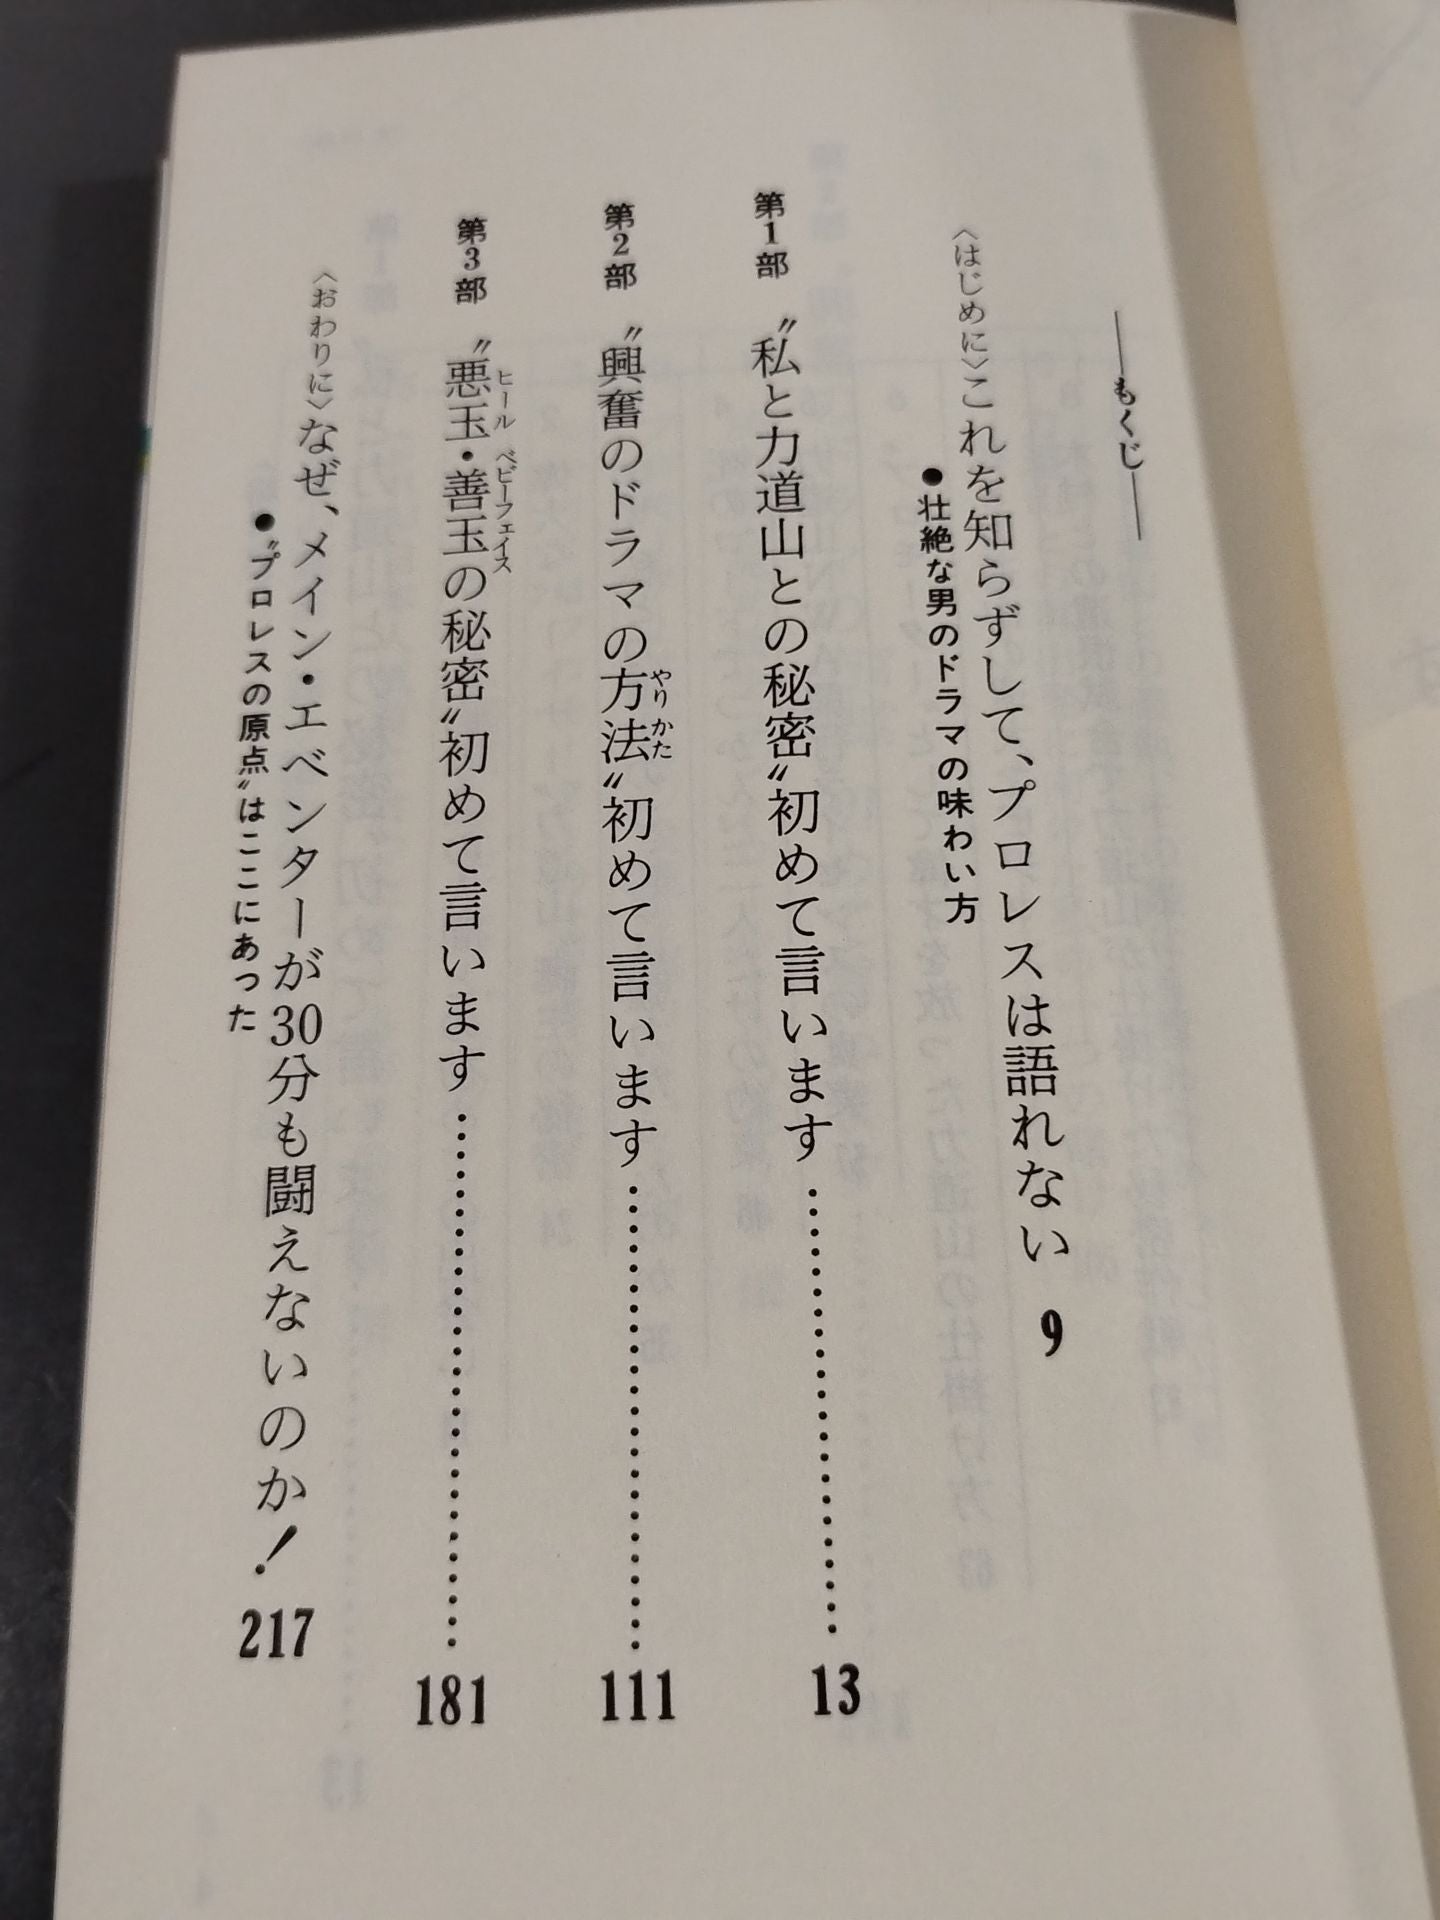 ――もくじ――
〈はじめに〉これを知らずして、プロレスは語れない 9
●壮絶な男のドラマの味わい方
第1部 〝私と力道山との秘密〟初めて言います…………………… 13
第2部 〝興奮のドラマの方法〟初めて言います…………………… 111
やりかた
第3部 〝悪玉・善玉の秘密〟初めて言います…………………… 181
ヒール ベビーフェイス
〈おわりに〉なぜ、メイン・エベンターが30分も闘えないのか！ 217
●〝プロレスの原点〟はここにあった